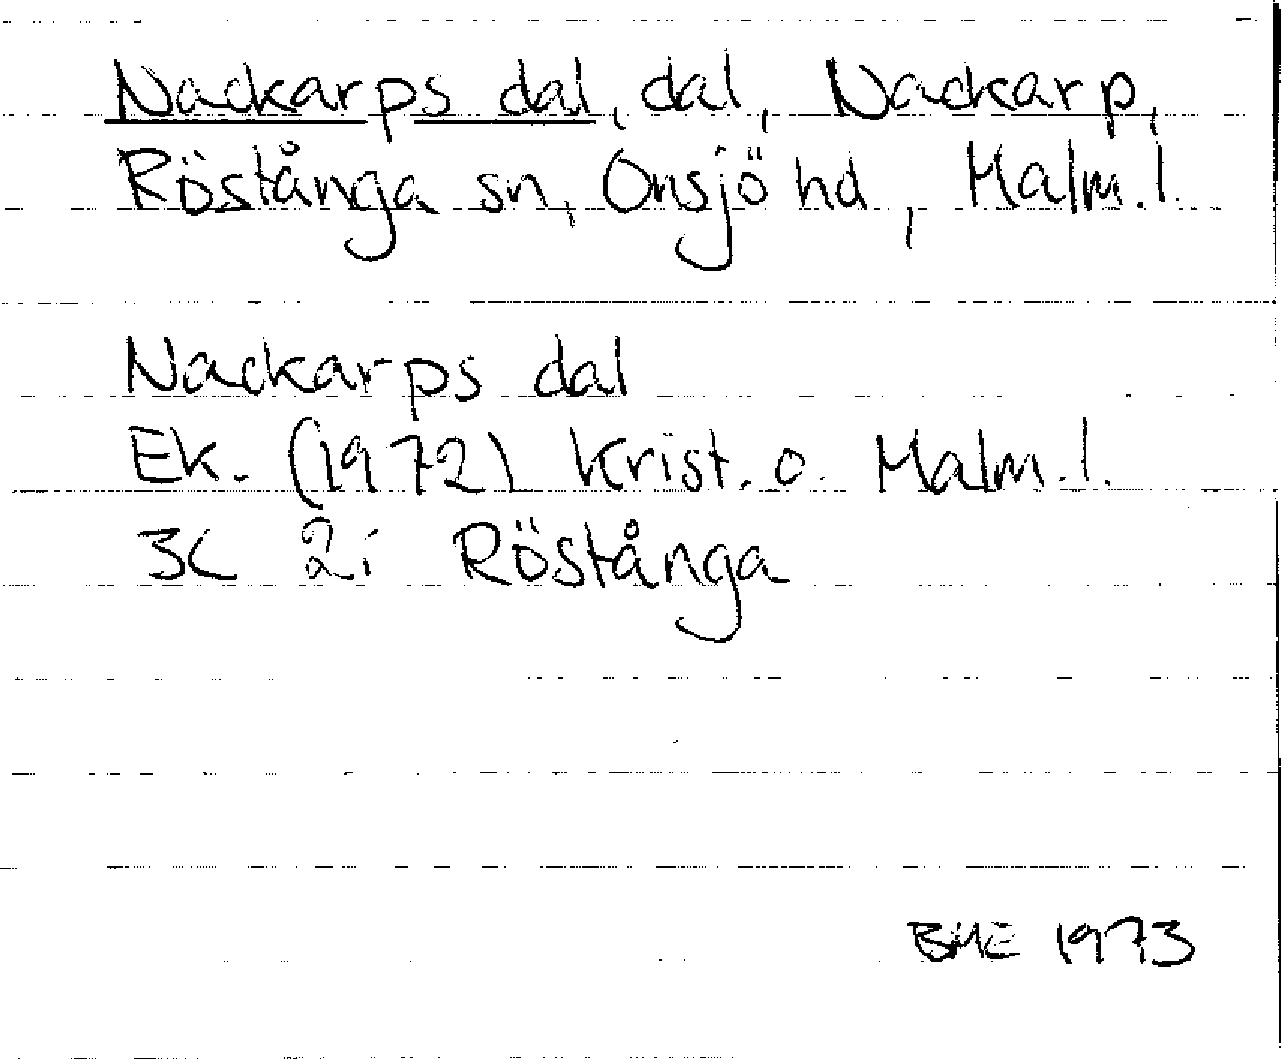 Nackarps dal, dal, Nackarp,
Röstånga sn, Onsjö hd, Malm.l.
Nackarps dal
Ek. (1972) Krist. o. Malm.l.
3C 2i Röstånga
BME 1973